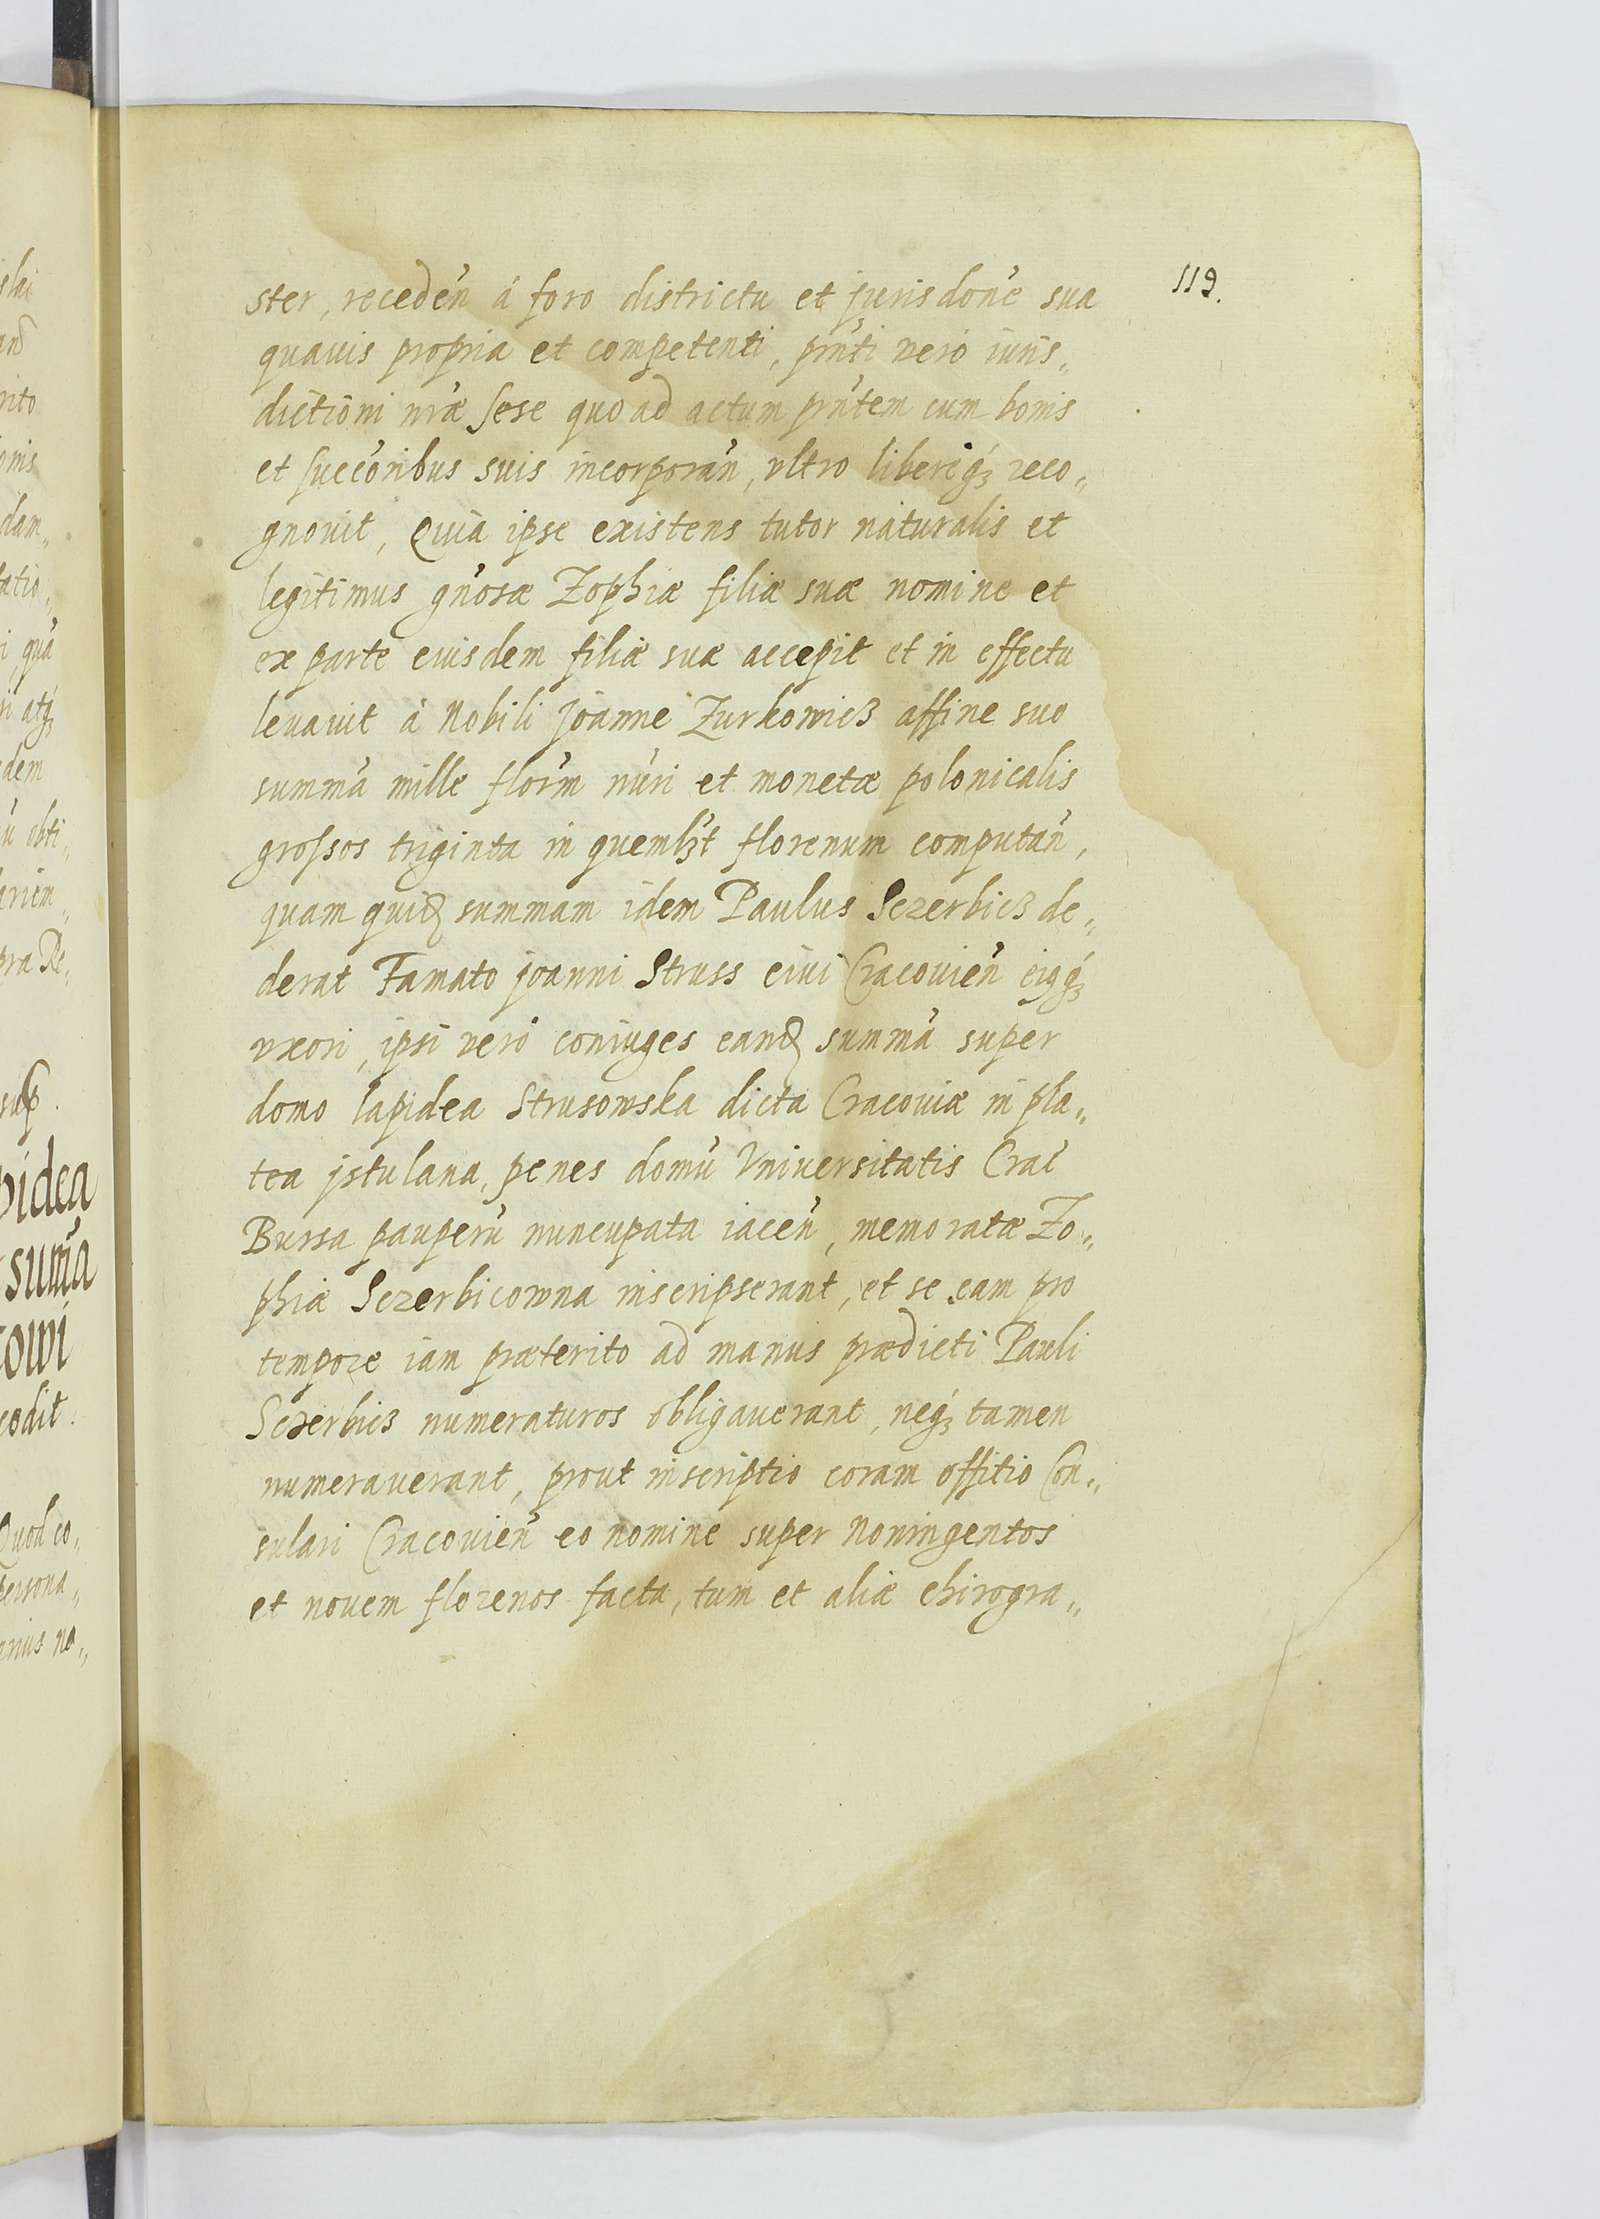 119.
ster, receden̄ á foro districtu et jurisdon̄e sua
quauis propria et competenti, pn̄ti verò iuris„
dictioni nr̄æ sese quo ad actum pn̄tem cum bonis
et succōribus suis incorporan̄, vltro liberéq́ꝫ reco„
gnouit, Quia ipse existens tutor naturalis et
legitimus gn̄osæ Zophiæ filiæ suæ nomine et
ex parte eiusdem filiæ suæ accepit et in effectu
leuauit á Nobili Joanne Zurkowicz affine suo
summā mille flor̄m nūri et monetæ polonicalis
grossos triginta in quemlꝫt florenum computan̄,
quam quid̨ summam idem Paulus Sczerbicz de„
derat Famato Joanni Struss ciui Cracouien̄ eiqq́ꝫ
vxori, ipsi verò coniuges eand̨ summā super
domo lapidea Strusowska dicta Cracouiæ in pla„
tea jstulana, penes domū Vniuersitatis Crac̄
Bursa pauperū nuncupata iacen̄, memoratæ Zo„
phiæ Sczerbicowna inscripserant, et se eam pro
tempore iam præterito ad manus prædicti Pauli
Sczerbicz numeraturos obligauerant, neq́ꝫ tamen
numerauerant, prout inscriptio coram offitio Con„
sulari Cracouien̄ eo nomine super Noningentos
et nouem florenos facta, tum et aliæ chirogra„